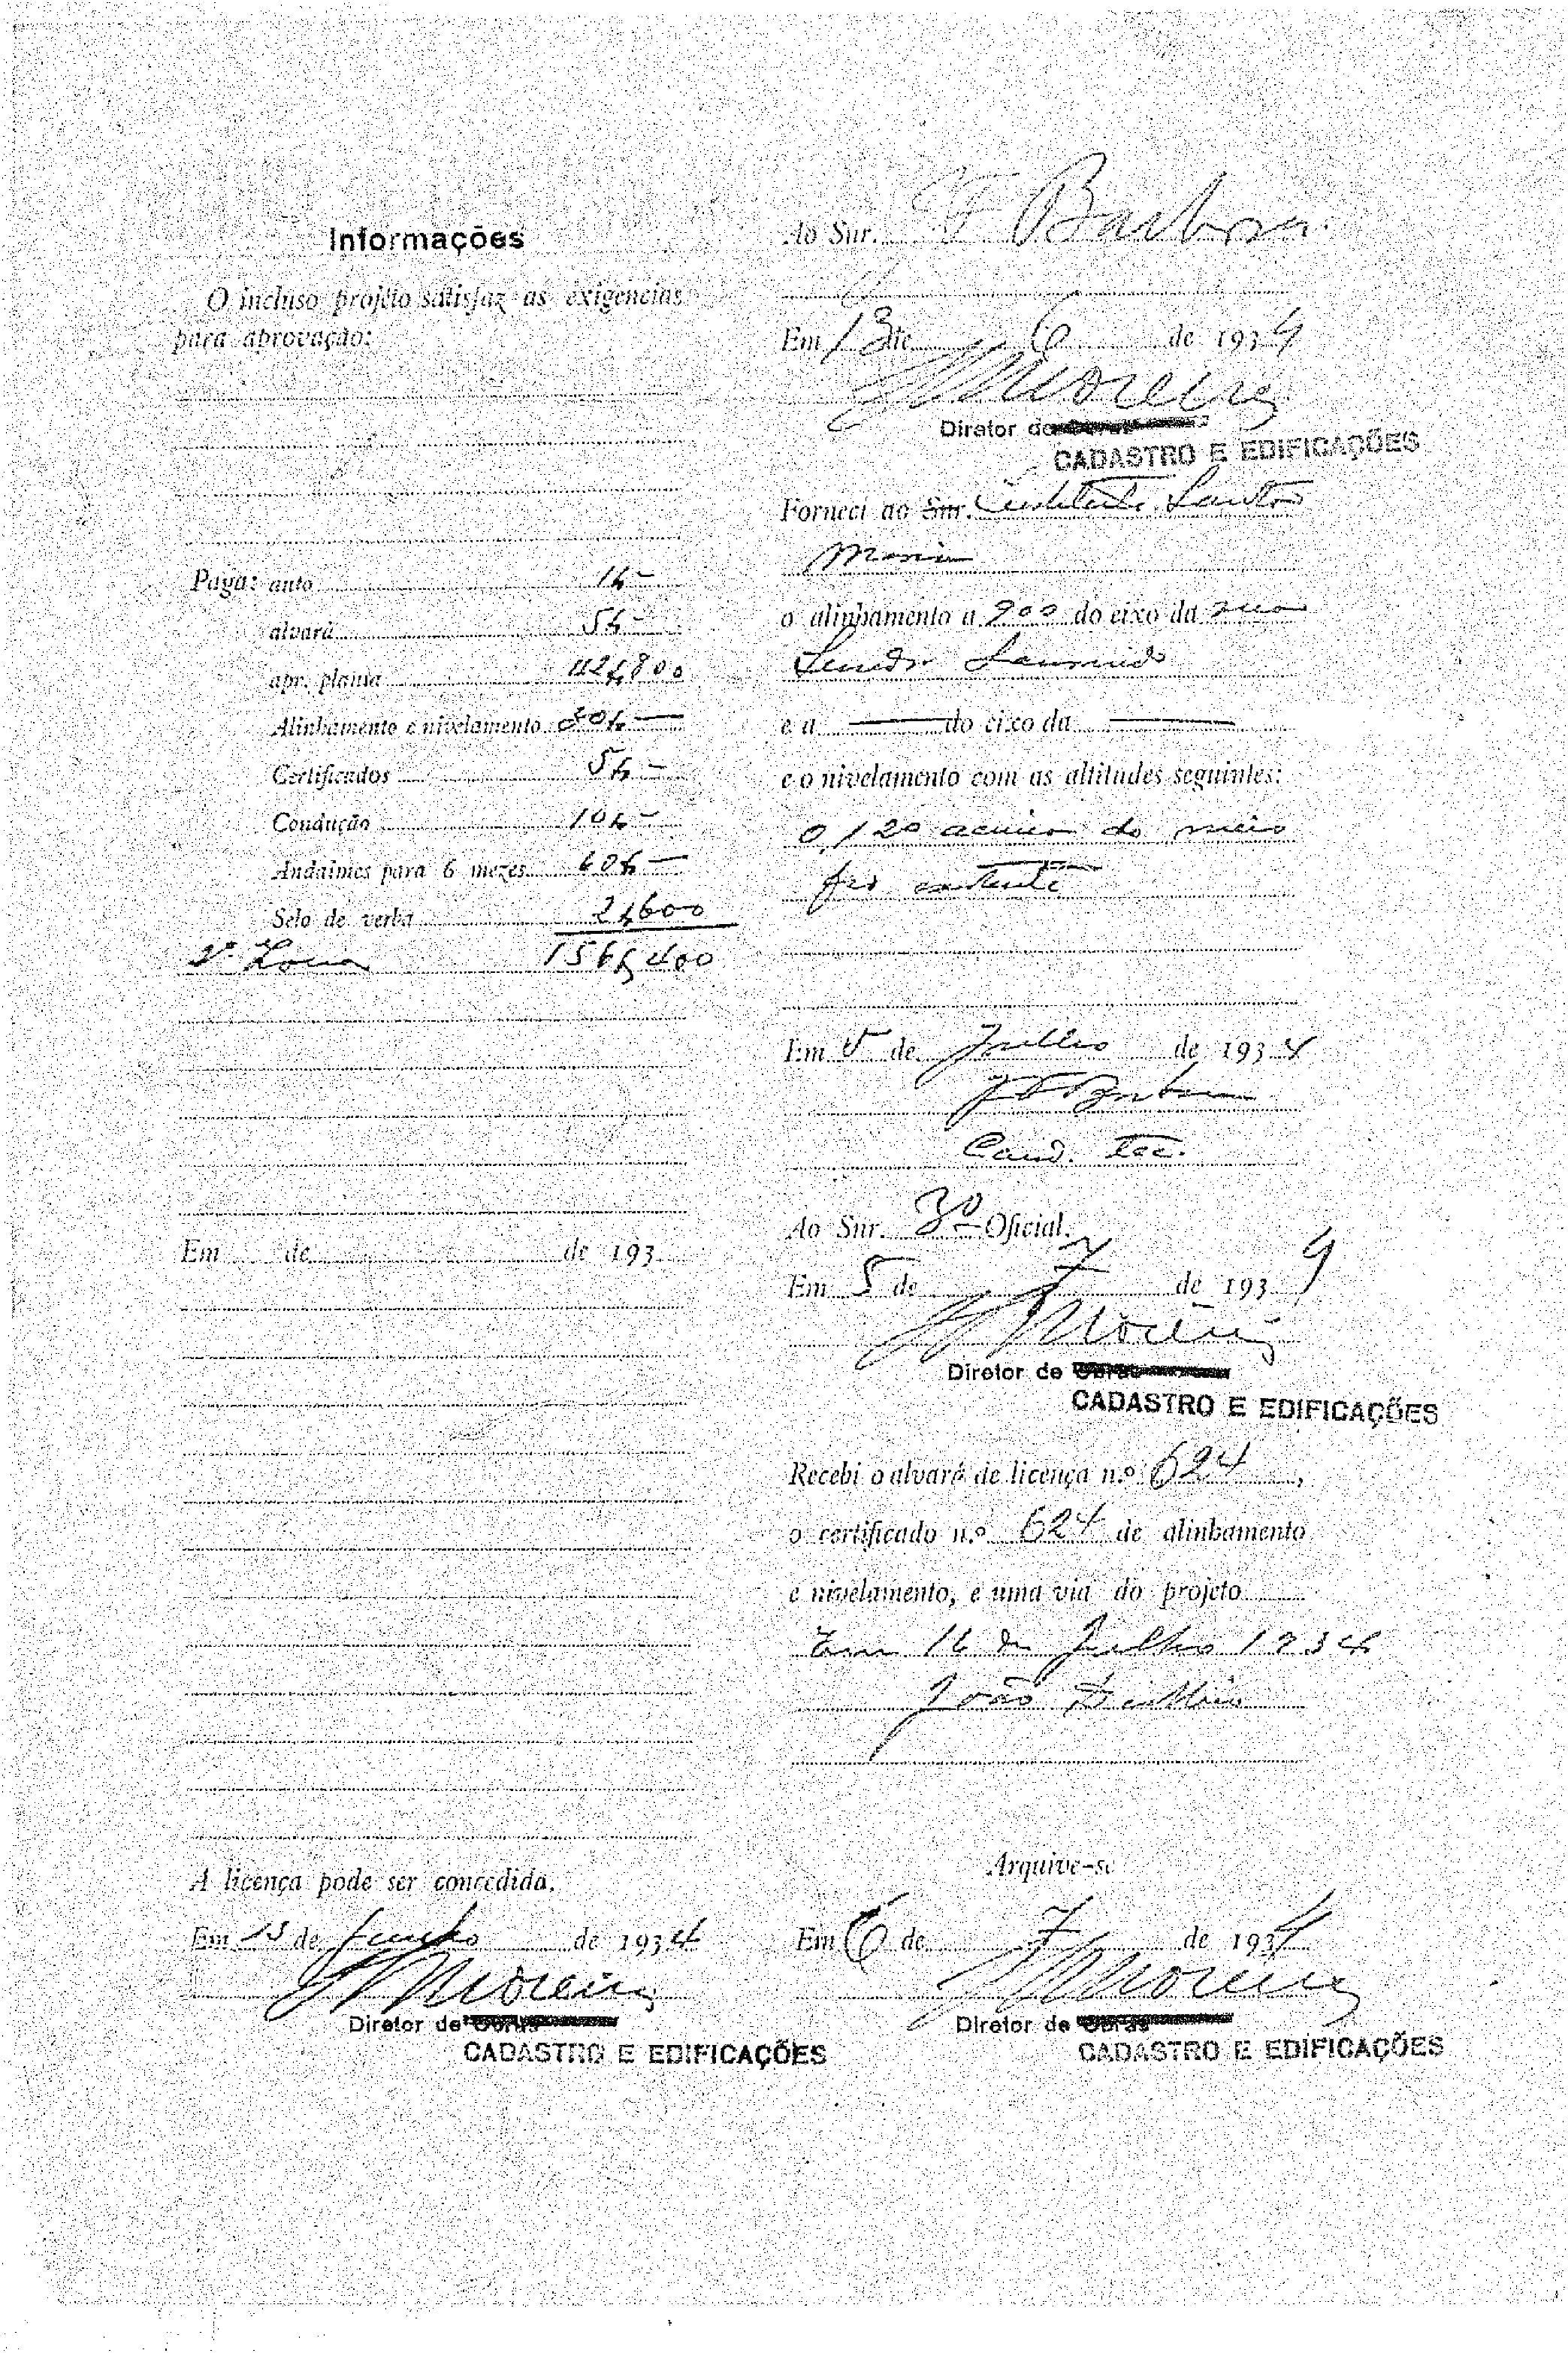 Informações
O incluso projéto satisfaz as exigencias
para aprovação:
Paga: auto 1$-
alvará 5$-
apr. planta 42$800
Alinhamento e nivelamento 30$-
Certificados 5$-
Condução 10$-
Andaimes para 6 mezes 60$-
Selo de verba 2$600
2ª Zona 156$400
Em de de 193
A licença pode ser concedida.
Em 15 de Junho de 1934
Moreira
Diretor de Obras
CADASTRO E EDIFICAÇÕES
Ao Snr. F Barbosa
Em 13 de 6 de 1934
Moreira
Diretor de Obras
CADASTRO E EDIFICAÇÕES
Forneci ao Snr. Instituto Santa
Maria
o alinhamento a 900 do eixo da rua
e a do eixo da
e o nivelamento com as altitudes seguintes:
0,120 acima do meio
fio existente
Em 5 de Julho de 1934
Cond. Tec.
Ao Snr. 3º Oficial.
Em 5 de 7 de 1934
Moreira
Diretor de Obras
CADASTRO E EDIFICAÇÕES
Recebi o alvará de licença n.º 624,
o certificado n.º 624 de alinhamento
e nivelamento, e uma via do projeto
Em 16 de Julho 1934
João
Arquive-se
Em 6 de 7 de 1934
Moreira
Diretor de Obras
CADASTRO E EDIFICAÇÕES